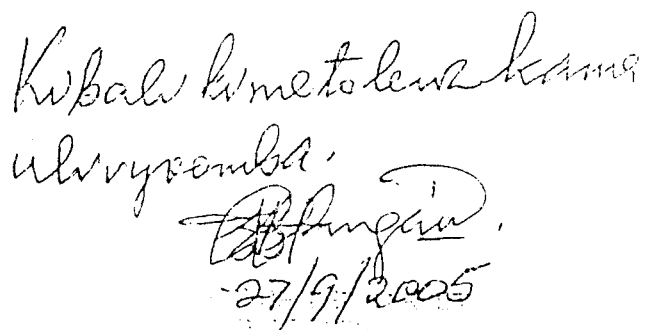 Kibali kimetolewa kama
ulivyoomba.
27/9/2005